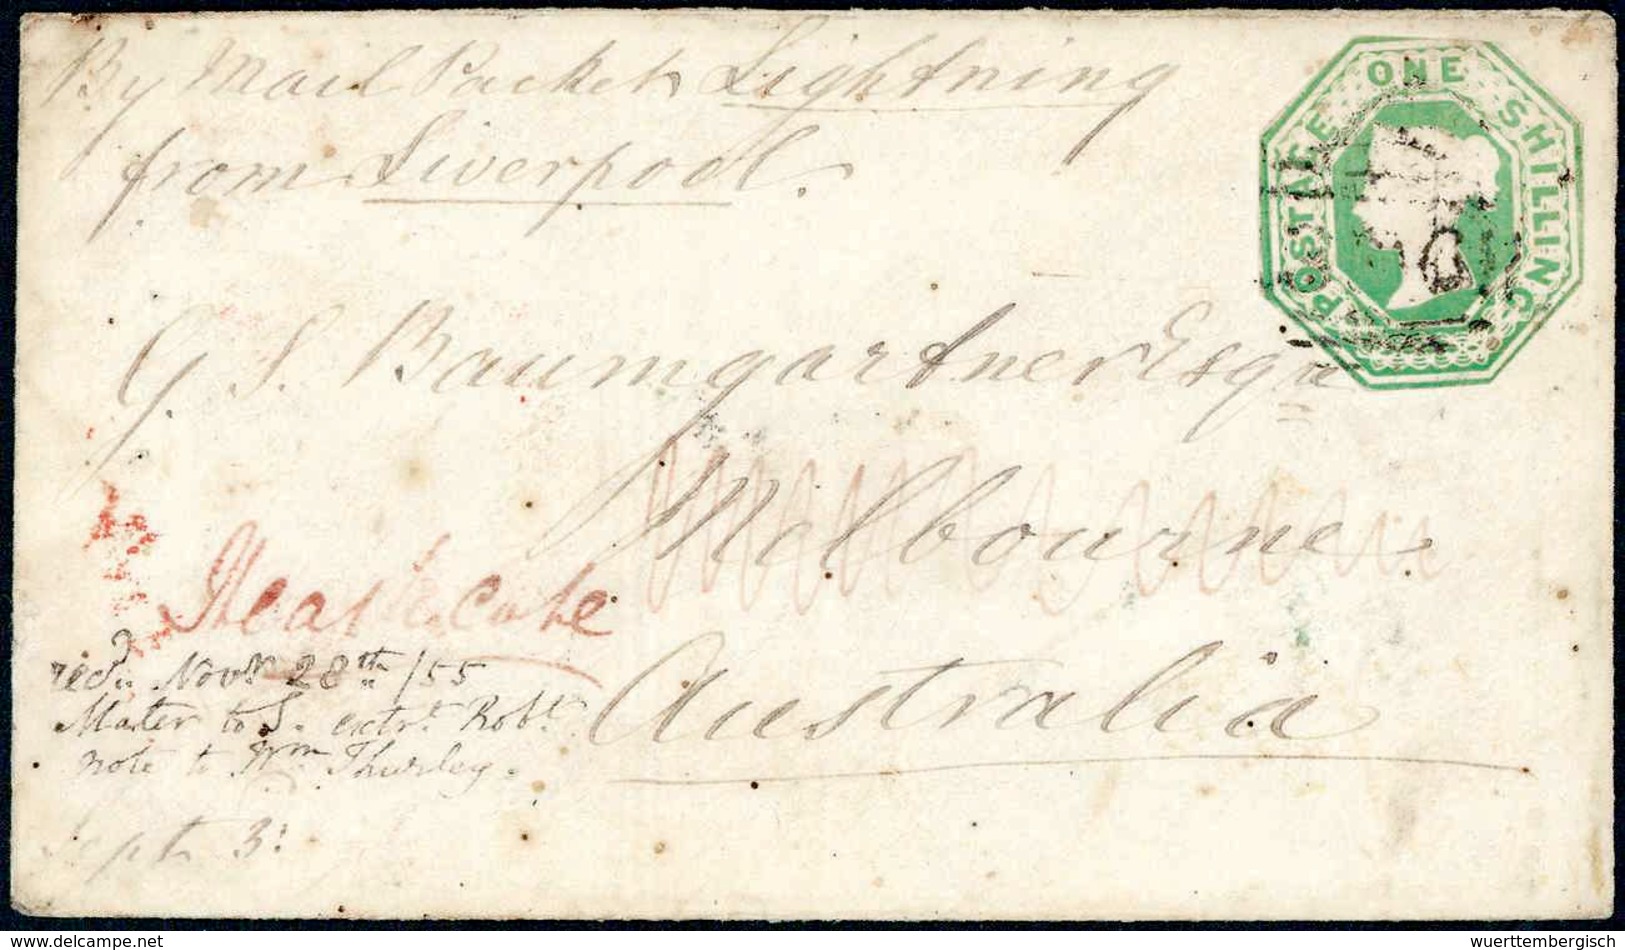 By Mail Packet Lightning
from Liverpool.
POSTAGE ONE SHILLING
G S. Baumgartner Esqr
Melbourne
Heathcote
Australia
recd. Novr 28th /55
Mater to S.
note to Wm Thurley.
Sept 3:
delcampe.net
wuerttembergisch